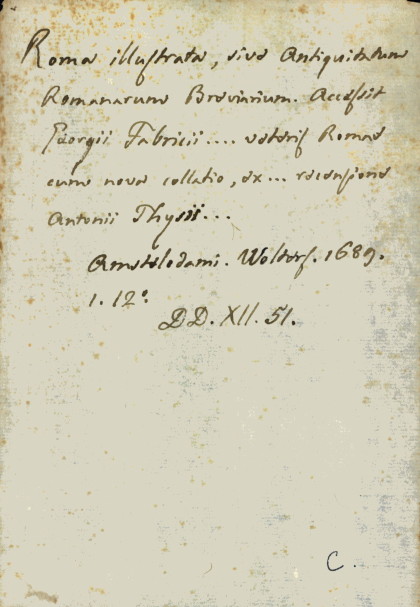 Roma illustrata, sive Antiquitatum
Romanarum Breviarium. Accessit
Georgii Fabricii .... veteris Romae
cum nova collatio, ex ... recensione
Antonii Thysii ...
Amstelodami. Wolters. 1689.
1. 12º.
DD. XII. 51.
C.